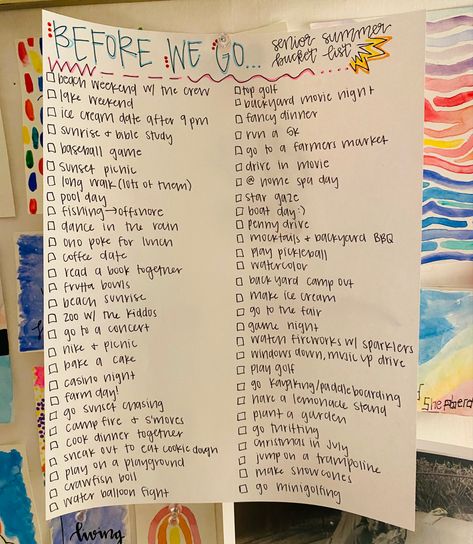 BEFORE WE GO...
senior summer
bucket list
beach weekend w/ the crew
lake weekend
ice cream date after 9pm
sunrise + bible study
baseball game
sunset picnic
long walk (lots of them)
pool day
fishing → offshore
dance in the rain
ono poke for lunch
coffee date
read a book together
frutta bowls
beach sunrise
zoo w/ the kiddos
go to a concert
hike + picnic
bake a cake
casino night
farm day!
go sunset chasing
camp fire + s'mores
cook dinner together
sneak out to eat cookie dough
play on a playground
crawfish boil
water balloon fight
top golf
backyard movie night
fancy dinner
run a 5k
go to a farmers market
drive in movie
@ home spa day
star gaze
boat day :)
penny drive
mocktails + backyard BBQ
play pickleball
watercolor
backyard camp out
make ice cream
go to the fair
game night
watch fireworks w/ sparklers
windows down, music up drive
play golf
go kayaking/paddleboarding
have a lemonade stand
plant a garden
go thrifting
christmas in july
jump on a trampoline
make snowcones
go minigolfing
living